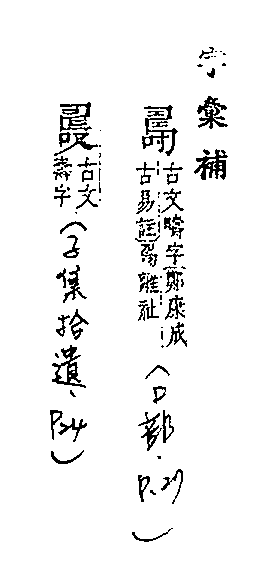 字彙補
古文疇字鄭康成
古易註離祉
(口部.P.27)
古文
壽字
(子集拾遺.P24)